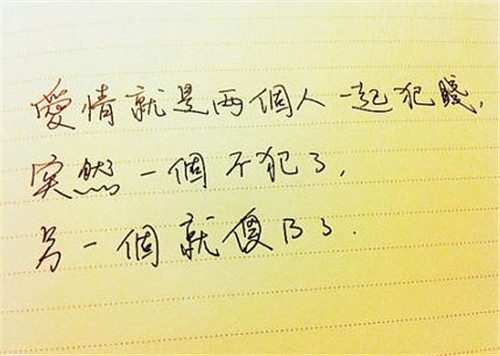 愛情就是两個人一起犯賤，
突然一個不犯了，
另一個就傻B了.